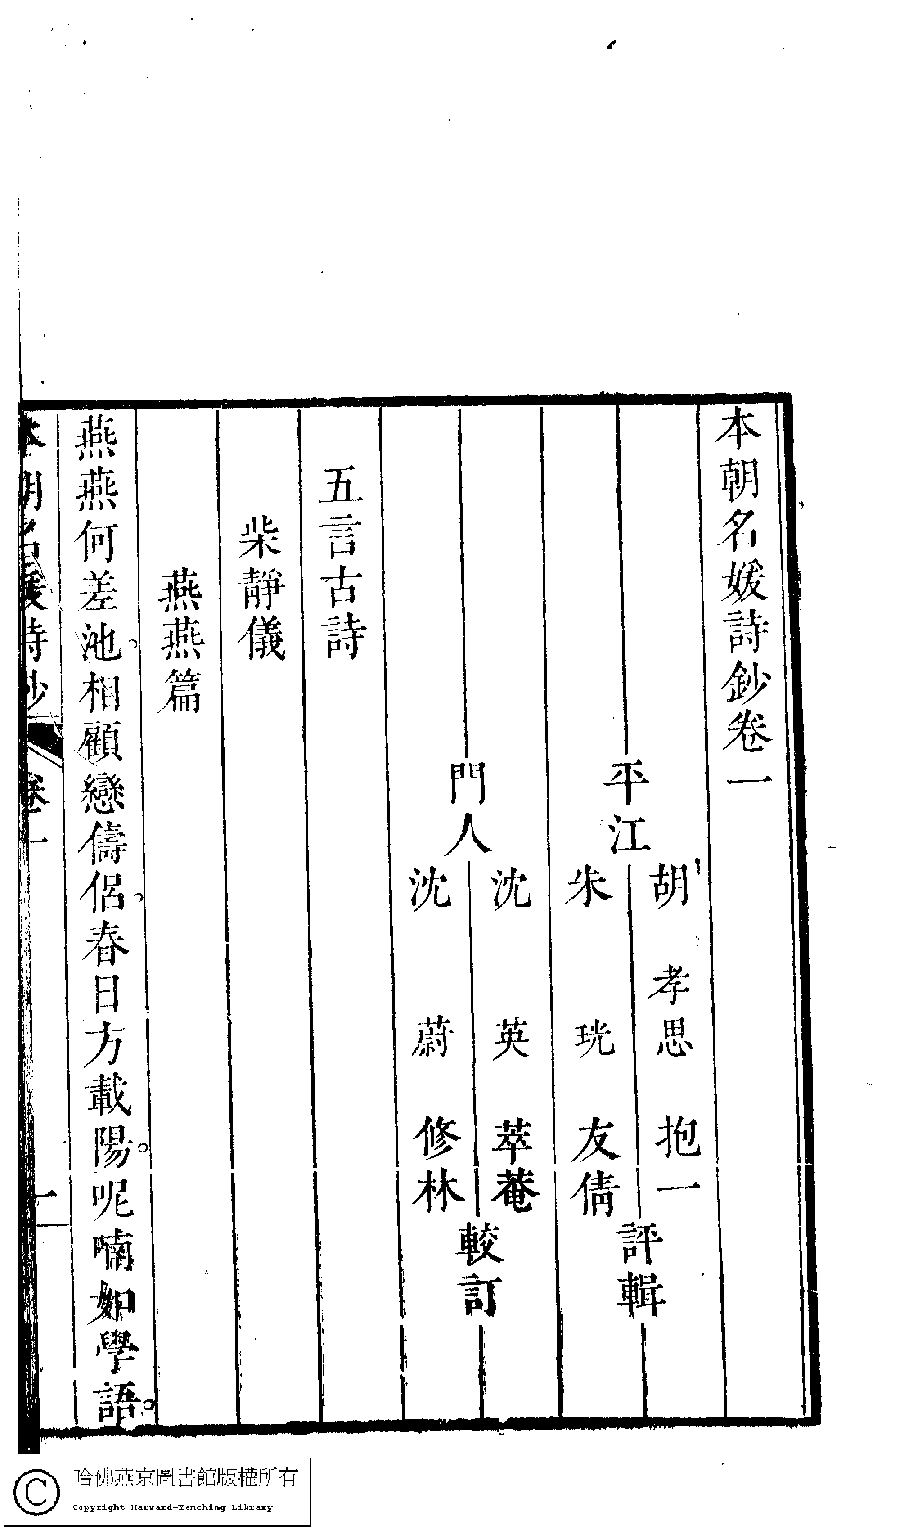 本朝名媛詩鈔卷一
平江
胡孝思抱一
朱珖友倩
評輯
門人
沈英萃菴
沈蔚修林
較訂
五言古詩
柴靜儀
燕燕篇
燕燕何差池。相顧戀儔侶。春日方載陽。呢喃如學語。
本朝名媛詩鈔 卷一 一
哈佛燕京圖書館版權所有
Copyright Harvard-Yenching Library